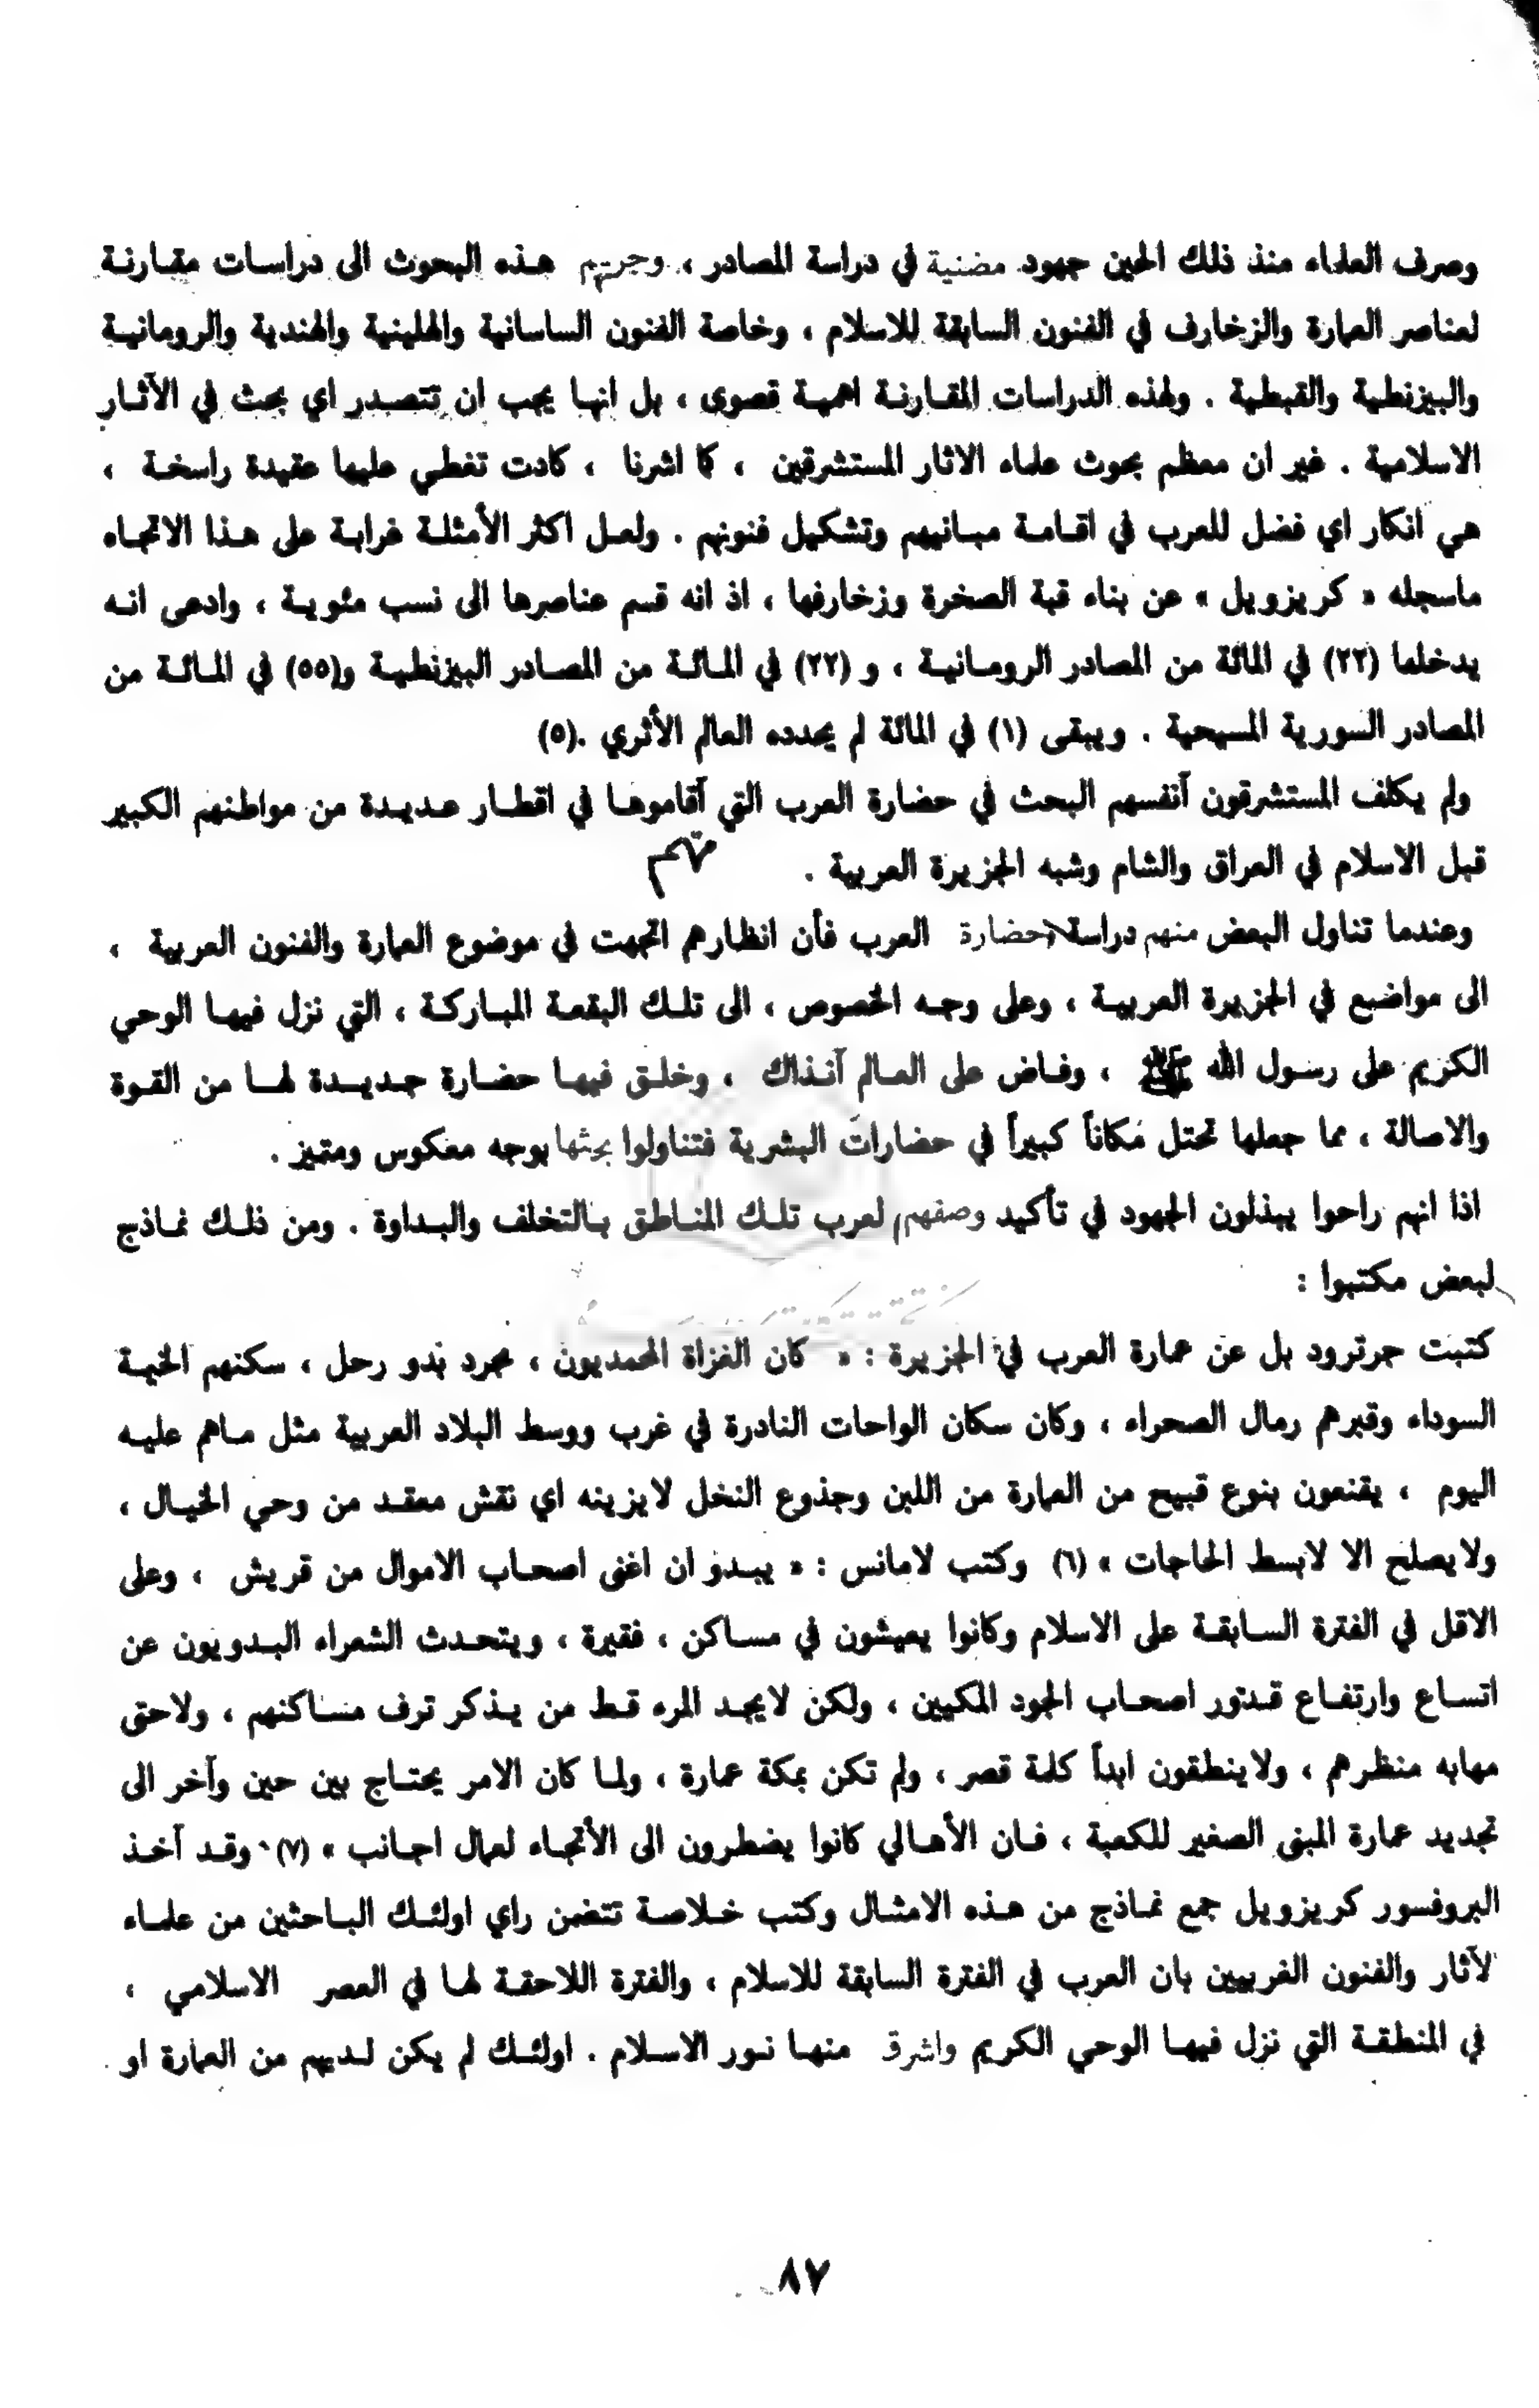 وصرف العلماء منذ ذلك الحين جهود مضنية في دراسة المصادر ، وجرتهم هذه البحوث الى دراسات مقارنة
لعناصر العمارة والزخارف في الفنون السابقة للاسلام ، وخاصة الفنون الساسانية والهلينية والهندية والرومانية
والبيزنطية والقبطية . ولهذه الدراسات المقارنة اهمية قصوى ، بل انها يجب ان تتصدر اي بحث في الآثار
الاسلامية . غير ان معظم بحوث علماء الاثار المستشرقين ، كما اشرنا ، كادت تغطي عليها عقيدة راسخة ،
هي انكار اي فضل للعرب في اقامة مبانيهم وتشكيل فنونهم . ولعل اكثر الأمثلة غرابة على هذا الاتجاه
ماسجله « كريزويل » عن بناء قبة الصخرة وزخارفها ، اذ انه قسم عناصرها الى نسب مئوية ، وادعى انه
يدخلها (٢٢) في المائة من المصادر الرومانية ، و (٢٢) في المائة من المصادر البيزنطية و(٥٥) في المائة من
المصادر السورية المسيحية . ويبقى (١) في المائة لم يحدده العالم الأثري .(٥)
ولم يكلف المستشرقون أنفسهم البحث في حضارة العرب التي أقاموها في اقطار عديدة من مواطنهم الكبير
قبل الاسلام في العراق والشام وشبه الجزيرة العربية .
وعندما تناول البعض منهم دراسة حضارة العرب فأن انظارهم اتجهت في موضوع العمارة والفنون العربية ،
الى مواضيع في الجزيرة العربية ، وعلى وجه الخصوص ، الى تلك البقعة المباركة ، التي نزل فيها الوحي
الكريم على رسول الله ﷺ ، وفاض على العالم آنذاك ، وخلق فيها حضارة جديدة لها من القوة
والاصالة ، مما جعلها تحتل مكاناً كبيراً في حضارات البشرية فتناولوا بحثها بوجه معكوس ومتميز .
اذا انهم راحوا يبذلون الجهود في تأكيد وصفهم لعرب تلك المناطق بالتخلف والبداوة . ومن ذلك نماذج
لبعض مكتبوا :
كتبت جرترود بل عن عمارة العرب في الجزيرة : « كان الغزاة المحمديون ، مجرد بدو رحل ، سكنهم الخيمة
السوداء وقبرهم رمال الصحراء ، وكان سكان الواحات النادرة في غرب ووسط البلاد العربية مثل ماهم عليه
اليوم ، يقنعون بنوع قبيح من العمارة من اللبن وجذوع النخل لايزينه اي نقش معقد من وحي الخيال ،
ولايصلح الا لابسط الحاجات » (٦) وكتب لامانس : « يبدو ان اغنى اصحاب الاموال من قريش ، وعلى
الاقل في الفترة السابقة على الاسلام وكانوا يعيشون في مساكن ، فقيرة ، ويتحدث الشعراء البدويون عن
اتساع وارتفاع قدور اصحاب الجود المكيين ، ولكن لايجد المرء قط من يذكر ترف مساكنهم ، ولاحتى
مهابه منظرهم ، ولاينطقون ابداً كلمة قصر ، ولم تكن بمكة عمارة ، ولما كان الامر يحتاج بين حين وآخر الى
تجديد عمارة المبنى الصغير للكعبة ، فان الأهالي كانوا يضطرون الى الأتجاء لعمال اجانب » (٧) وقد آخذ
البروفسور كريزويل جمع نماذج من هذه الامثال وكتب خلاصة تتضمن راي اولئك الباحثين من علماء
لآثار والفنون الغربيين بان العرب في الفترة السابقة للاسلام ، والفترة اللاحقة لها في العصر الاسلامي ،
في المنطقة التي نزل فيها الوحي الكريم واشرق منها نور الاسلام . اولئك لم يكن لديهم من العمارة او
٨٧